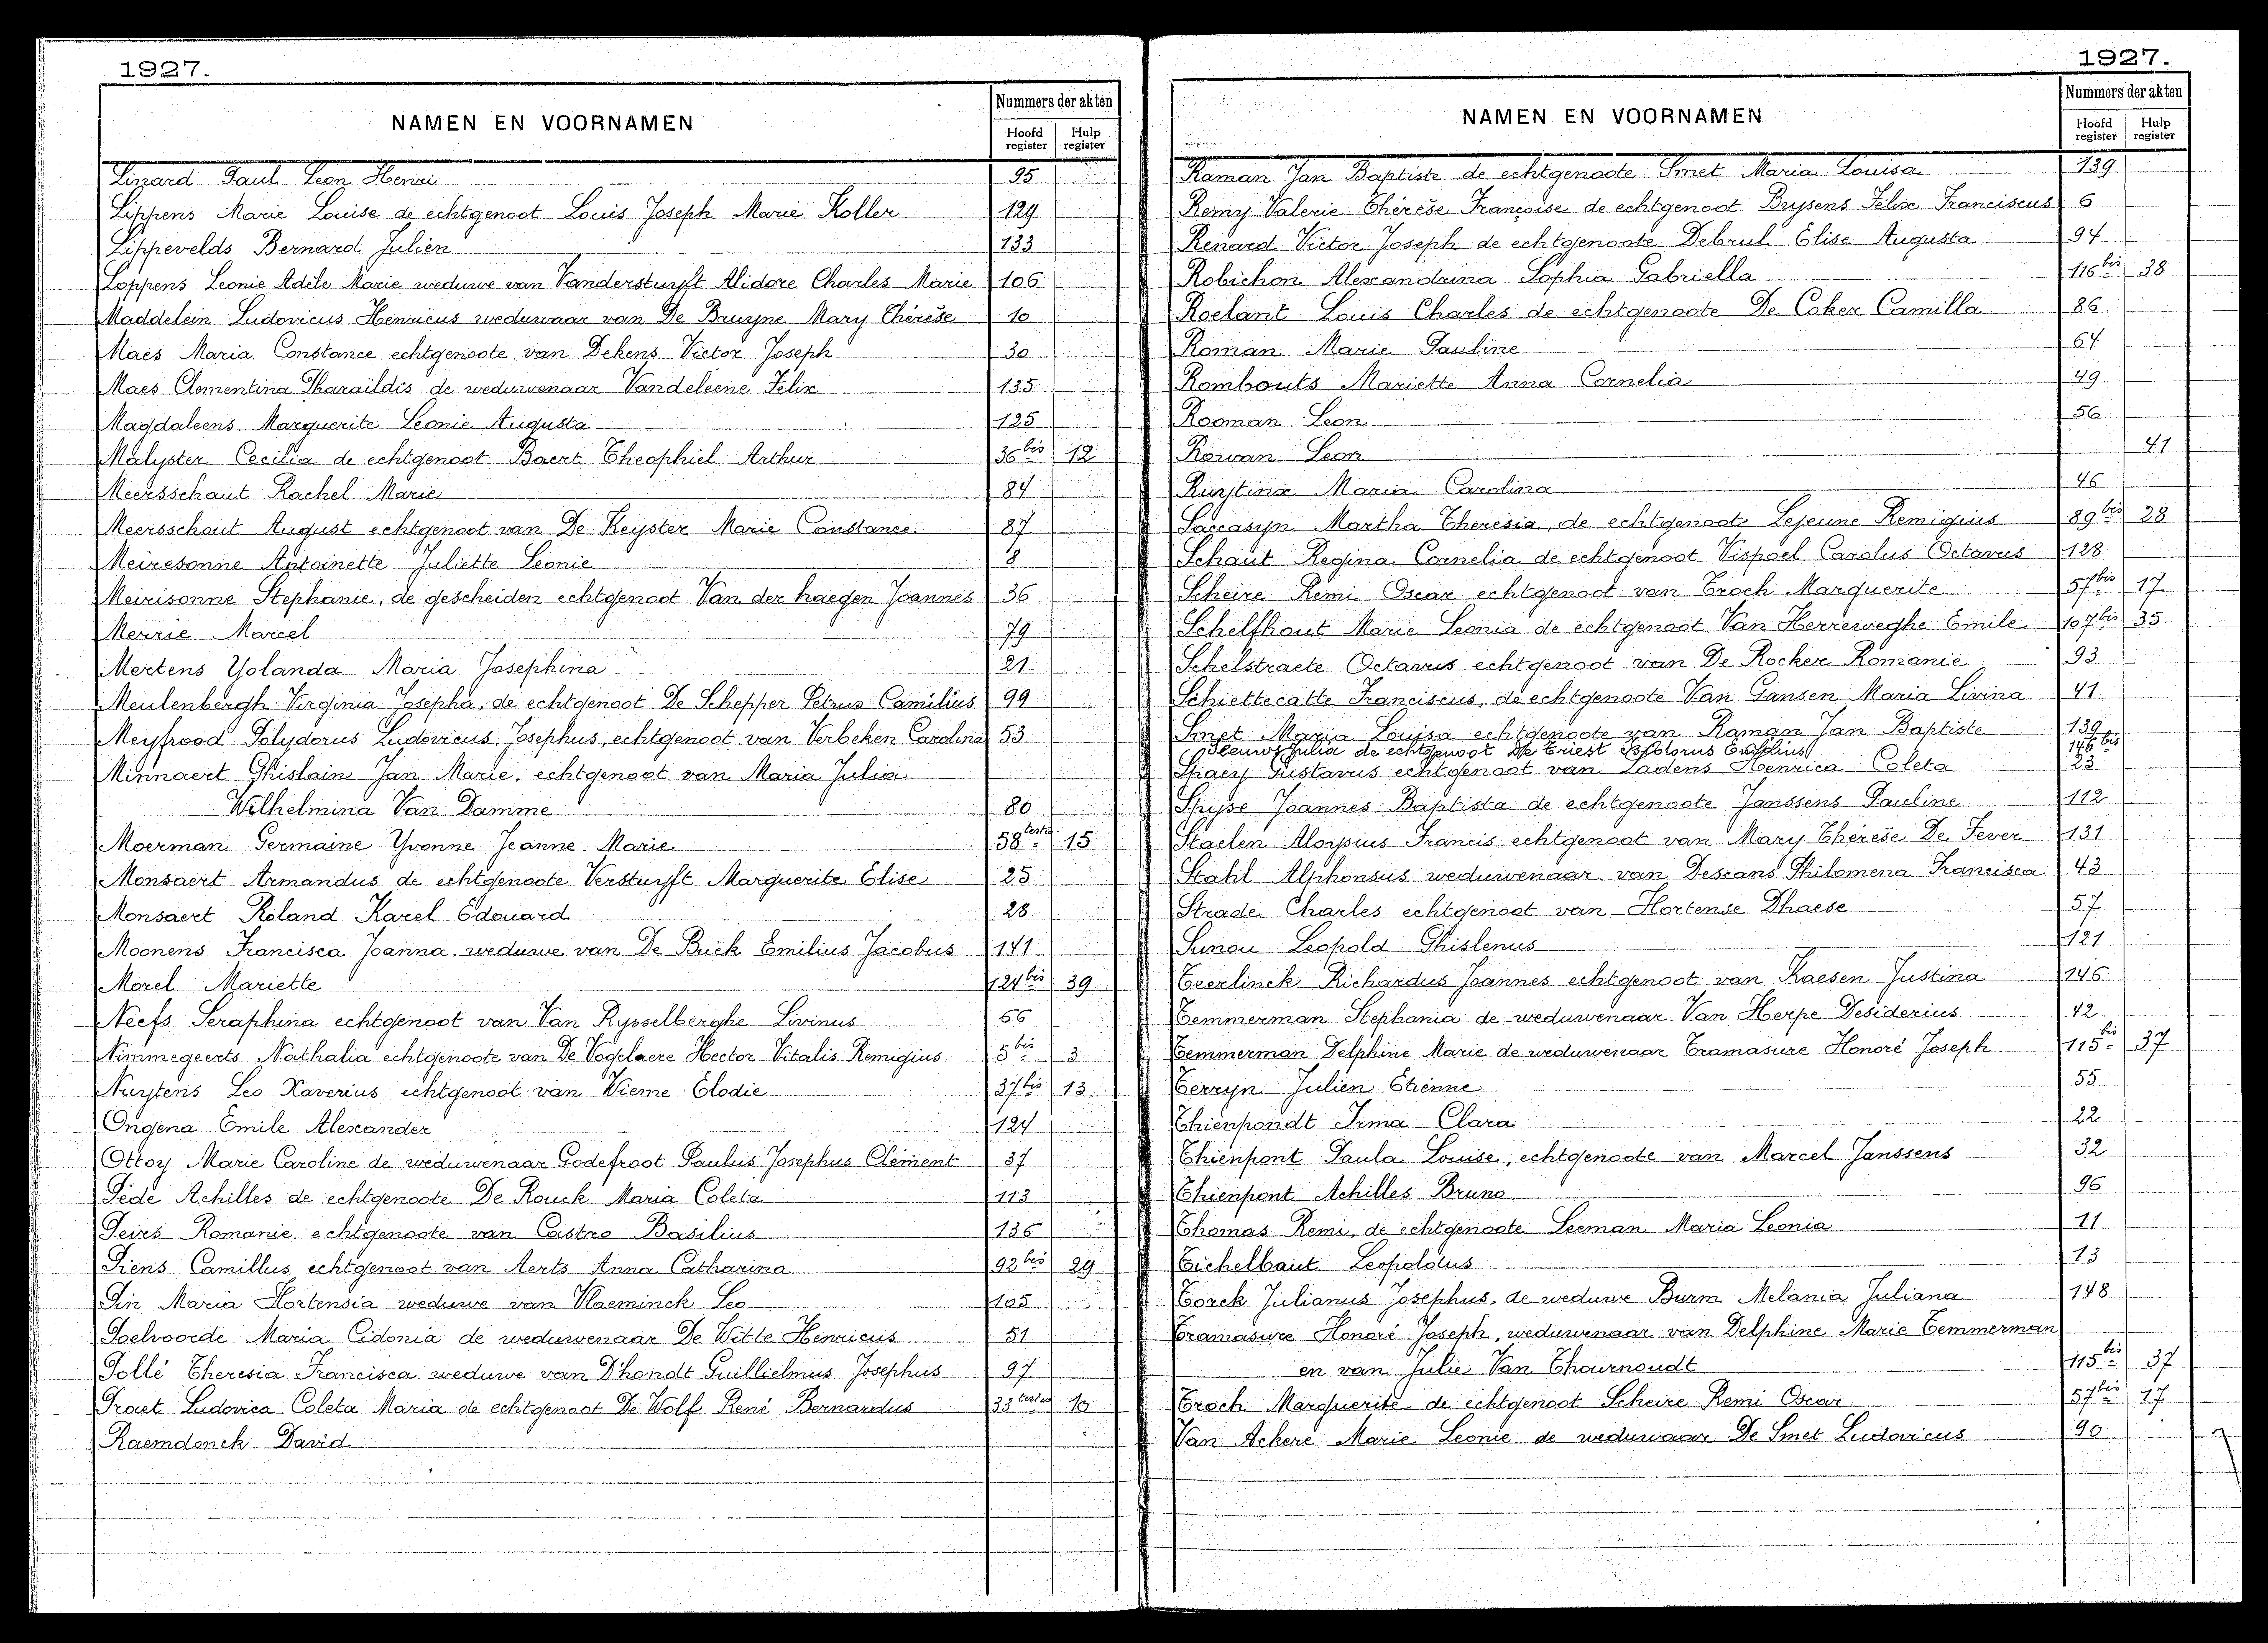 1927.
NAMEN EN VOORNAMEN
Nummers der akten
Hoofd register
Hulp register
Paul Leon Henri 95
Lippens Marie Louise de echtgenoot Louis Joseph Marie Koller 129
Lippevelds Bernard Julien 133
Loppens Leonie Adèle Marie weduwe van Vandersturft Alidore Charles Marie 106
Maddelein Ludovicus Henricus weduwaar van De Bruyne Mary Thérèse 10
Maes Maria Constance echtgenoote van Dekens Victor Joseph 30
Maes Clementina Pharaildis de weduwenaar Vandeleene Felix 135
Magdaleens Marguerite Leonie Augusta 125
Malyster Cecilia de echtgenoot Baert Theophiel Arthur 36bis 12
Meersschaut Rachel Marie 84
Meersschout August echtgenoot van De Keyster Marie Constance 87
Meiresonne Antoinette Juliette Leonie 8
Meirisonne Stephanie, de gescheiden echtgenoot Van der haegen Joannes 36
Merrie Marcel 79
Mertens Yolanda Maria Josephina 21
Meulenbergh Virginia Josepha, de echtgenoot De Schepper Petrus Camilius 99
Meyfrood Polydorus Ludovicus, Josephus, echtgenoot van Verbeken Carolina 53
Minnaert Ghislain Jan Marie, echtgenoot van Maria Julia
Wilhelmina Van Damme 80
Moerman Germaine Yvonne Jeanne Marie 58tertio 15
Monsaert Armandus de echtgenoote Versturft Marguerite Elise 25
Monsaert Roland Karel Edouard 28
Moonens Francisca Joanna, weduwe van De Buck Emilius Jacobus 141
Morel Mariette 124bis 39
Neefs Seraphina echtgenoot van Van Rysselberghe Livinus 66
Nimmegeerts Nathalia echtgenoote van De Vogelaere Hector Vitalis Remigius 5bis 3
Nuytens Leo Xaverius echtgenoot van Wieme Elodie 37bis 13
Ongena Emile Alexander 124
Ottoy Marie Caroline de weduwenaar Godefroot Paulus Josephus Clément 37
Pede Achilles de echtgenoote De Rouck Maria Coleta 113
Peirs Romanie echtgenoote van Castro Basilius 136
Piens Camillus echtgenoot van Aerts Anna Catharina 92bis 29
Pin Maria Hortensia weduwe van Vlaeminck Leo 105
Poelvoorde Maria Cidonia de weduwenaar De Witte Henricus 51
Pollé Theresia Francisca weduwe van D'hondt Guillielmus Josephus 97
Praet Ludovica Coleta Maria de echtgenoot De Wolf René Bernardus 33tertio 10
Raemdonck David
1927.
NAMEN EN VOORNAMEN
Nummers der akten
Hoofd register
Hulp register
Raman Jan Baptiste de echtgenoote Smet Maria Louisa 139
Remy Valerie Thérèse Françoise de echtgenoot Brysens Felix Franciscus 6
Renard Victor Joseph de echtgenoote Debrul Elise Augusta 94
Robichon Alexandrina Sophia Gabriella 116bis 38
Roelant Louis Charles de echtgenoote De Coker Camilla 86
Roman Marie Pauline 64
Rombouts Mariette Anna Cornelia 49
Rooman Leon 56
Rowan Leon 41
Ruytinx Maria Carolina 46
Saccasyn Martha Theresia, de echtgenoot Lejeune Remigius 89bis 28
Schaut Regina Cornelia de echtgenoot Vispoel Carolus Octavus 128
Scheire Remi Oscar echtgenoot van Troch Marguerite 57bis 17
Schelfhout Marie Leonia de echtgenoot Van Herreweghe Emile 107bis 35
Schelstraete Octavus echtgenoot van De Rocker Romanie 93
Schiettecatte Franciscus, de echtgenoote Van Gansen Maria Livina 41
Smet Maria Louisa echtgenoote van Raman Jan Baptiste 139
Julia de echtgenoot De Triest 146bis
Spaey Gustavus echtgenoot van Ladens Henrica Coleta 23
Spijse Joannes Baptista de echtgenoote Janssens Pauline 112
Staelen Aloysius Francis echtgenoot van Mary Thérèse De Fever 131
Stahl Alphonsus weduwenaar van Descans Philomena Francisca 43
Strade Charles echtgenoot van Hortense Dhaese 57
Sunou Leopold Ghislenus 121
Teerlinck Richardus Joannes echtgenoot van Kaesen Justina 146
Temmerman Stephania de weduwenaar Van Herpe Desiderius 42
Temmerman Delphine Marie de weduwenaar Tramasure Honoré Joseph 115bis 37
Terryn Julien Etienne 55
Thienpondt Irma Clara 22
Thienpont Paula Louise, echtgenoote van Marcel Janssens 32
Thienpont Achilles Bruno 96
Thomas Remi, de echtgenoote Leeman Maria Leonia 11
Tichelbaut Leopoldus 13
Torck Julianus Josephus, de weduwe Burm Melania Juliana 148
Tramasure Honoré Joseph, weduwenaar van Delphine Marie Temmerman
en van Julie Van Thournoudt 115bis 37
Troch Marguerite de echtgenoot Scheire Remi Oscar 57bis 17
Van Ackere Marie Leonie de weduwaar De Smet Ludovicus 90